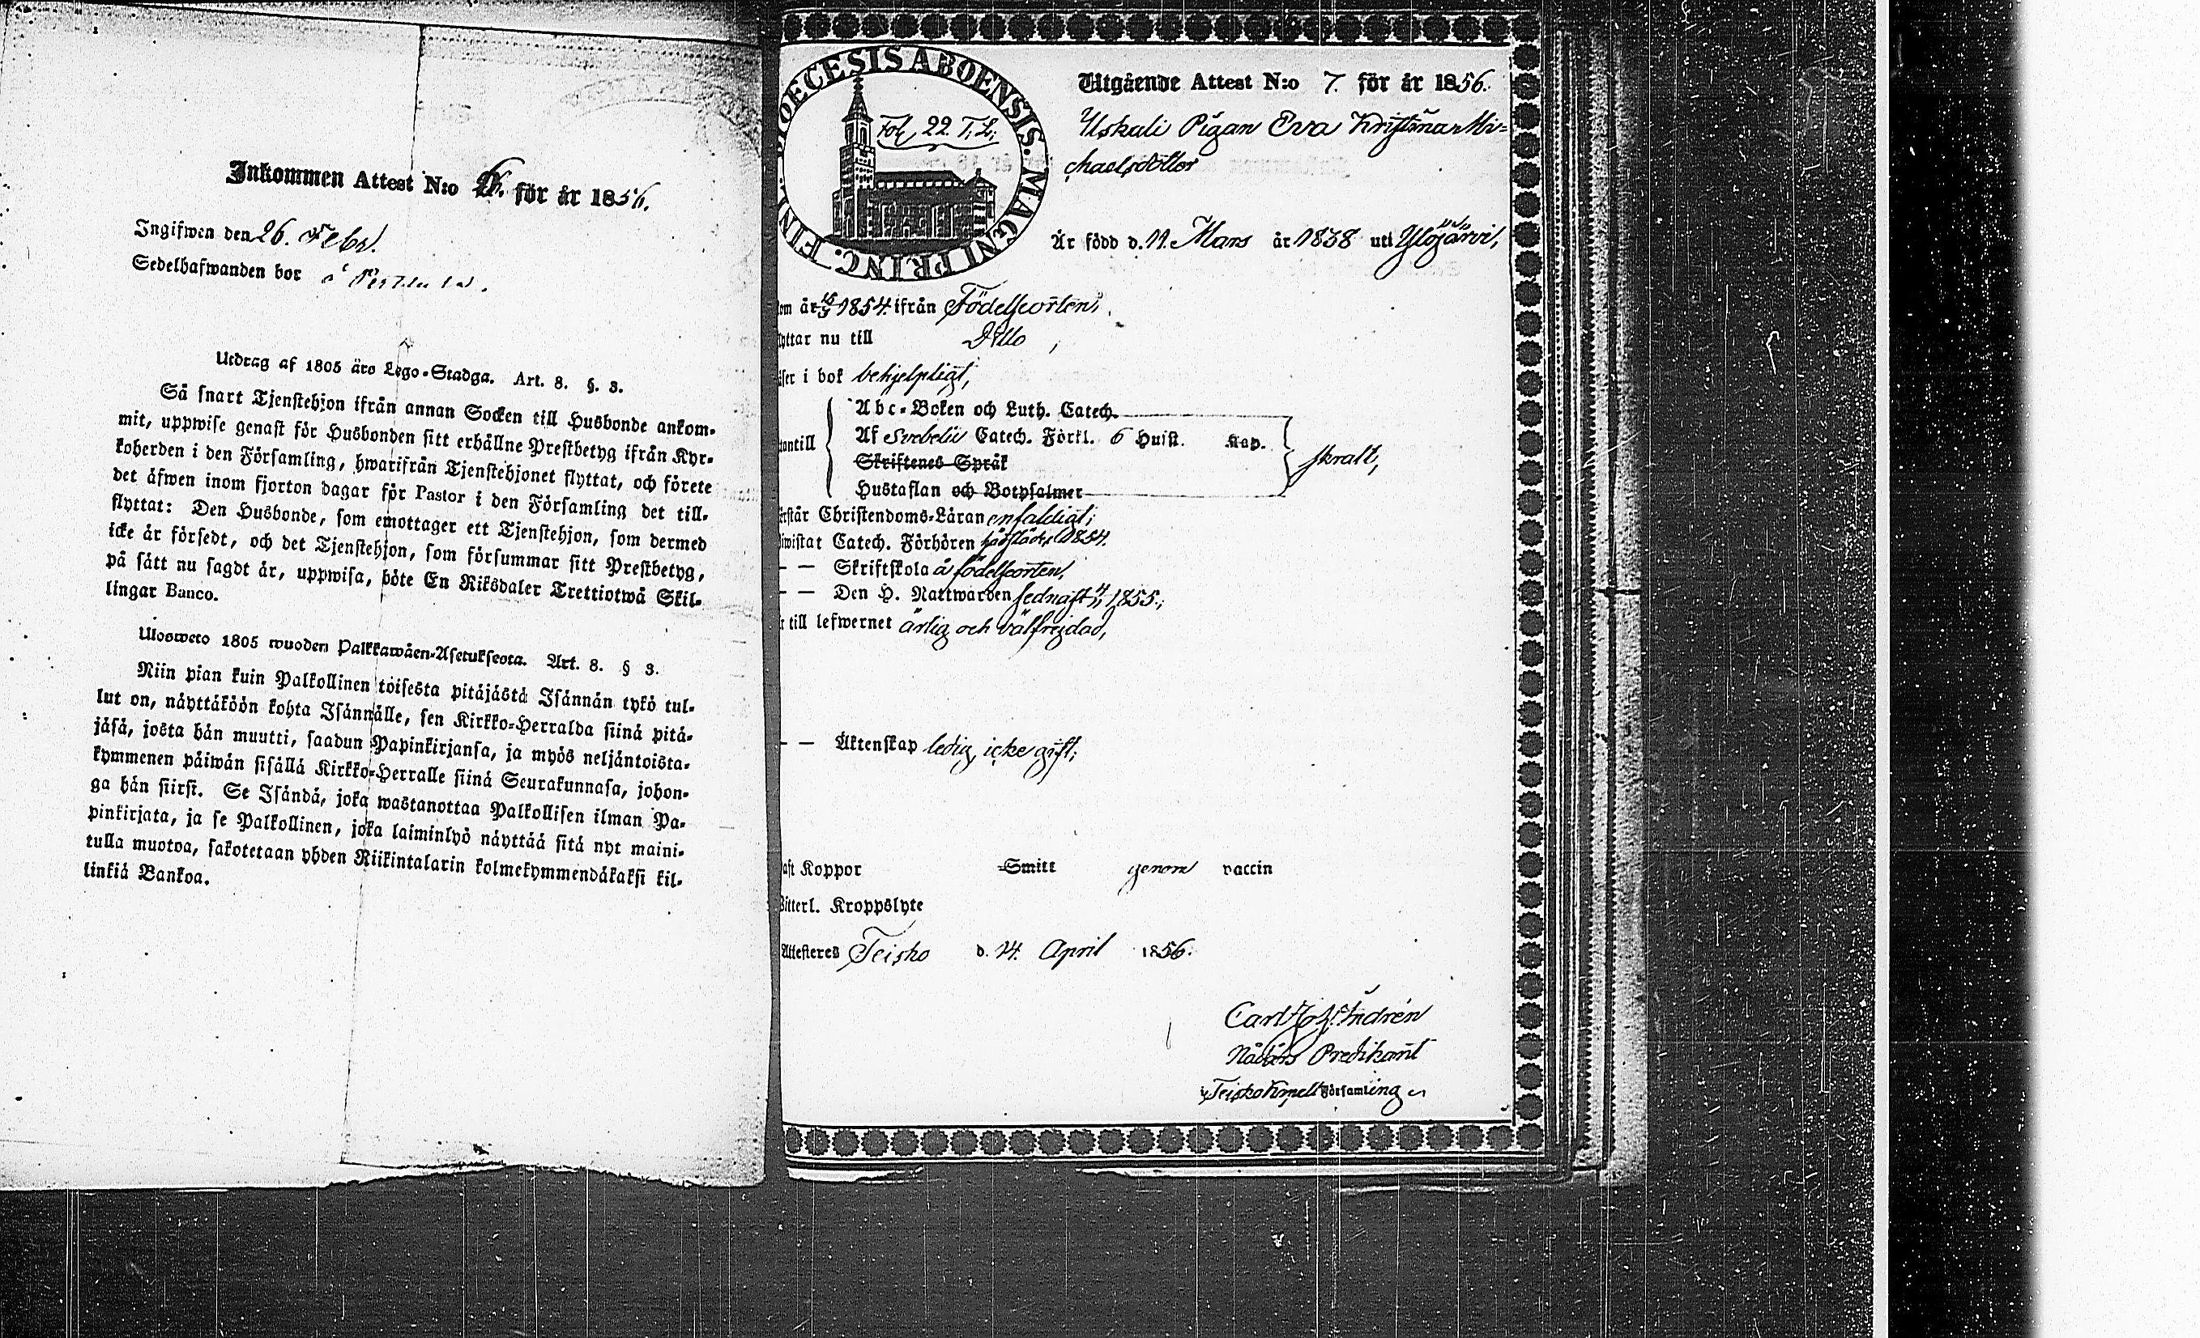 Inkommen Attest N:o för år 1856.
Ingifwen den 26. Febr.
Sedelhafwanden bor å
Utdrag af 1805 års Lego-Stadga. Art. 8. §. 3.
Så snart Tjenstehjon ifrån annan Socken till Husbonde ankom-
mit, uppwise genast för Husbonden sitt erhållne Prestbetyg ifrån Kyr-
koherden i den Församling, hwarifrån Tjenstehjonet flyttat, och förete
det äfwen inom fjorton dagar för Pastor i den Församling det till-
flyttat: Den Husbonde, som emottager ett Tjenstehjon, som dermed
icke är försedt, och det Tjenstehjon, som försummar sitt Prestbetyg,
på sätt nu sagdt är, uppwisa, böte En Riksdaler Trettiotwå Skil-
lingar Banco.
Ulosweto 1805 wuoden Palkkawäen-Asetuksesta. Art. 8. § 3.
Niin pian kuin Palkollinen toisesta pitäjästä Isännän tykö tul-
lut on, näyttäköön kohta Isännälle, sen Kirkko-Herralda siinä pitä-
jäsä, josta hän muutti, saadun Papinkirjansa, ja myös neljäntoista-
kymmenen päiwän sisällä Kirkko-Herralle siinä Seurakunnasa, johon-
ga hän siirsi. Se Isändä, joka wastanottaa Palkollisen ilman Pa-
pinkirjata, ja se Palkollinen, joka laiminlyö näyttää sitä nyt maini-
tulla muotoa, sakotetaan yhden Riikintalarin kolmekymmendäkaksi kil-
linkiä Bankoa.
DIOECESIS ABOENSIS. MAGNI PRINC. FINL.
Fol. 22. T. L.
Utgående Attest N:o 7. för år 1856.
Uskali Pigan Eva Kristina Mi-
chaelsdotter
Är född d. 11. Mars år 1838 uti Ylöjärvi,
om år 15/5 1854. ifrån Födelseorten,
yttar nu till Ditto,
äser i bok behjelpligt,
Abc-Boken och Luth. Catech.
antill Af Svebelii Catech. Förkl. 6 Hufst. Kap. skralt,
Skriftenes Språk
Hustaflan och Botpsalmer
rstår Christendoms-Läran enfaldigt;
iwistat Catech. Förhören härstädes 1854.
— — Skriftskola å födelseorten,
— — Den H. Nattwarden sednast 4/11 1855.,
till lefwernet ärlig och välfrejdad,
— — Äktenskap ledig, icke gift;
aft Koppor Smitt genom vaccin
Witterl. Kroppslyte
Attesteres Teisko d. 14. April 1856.
Carl Andrén
Nådårs Predikant
i Teisko Kapell Församling